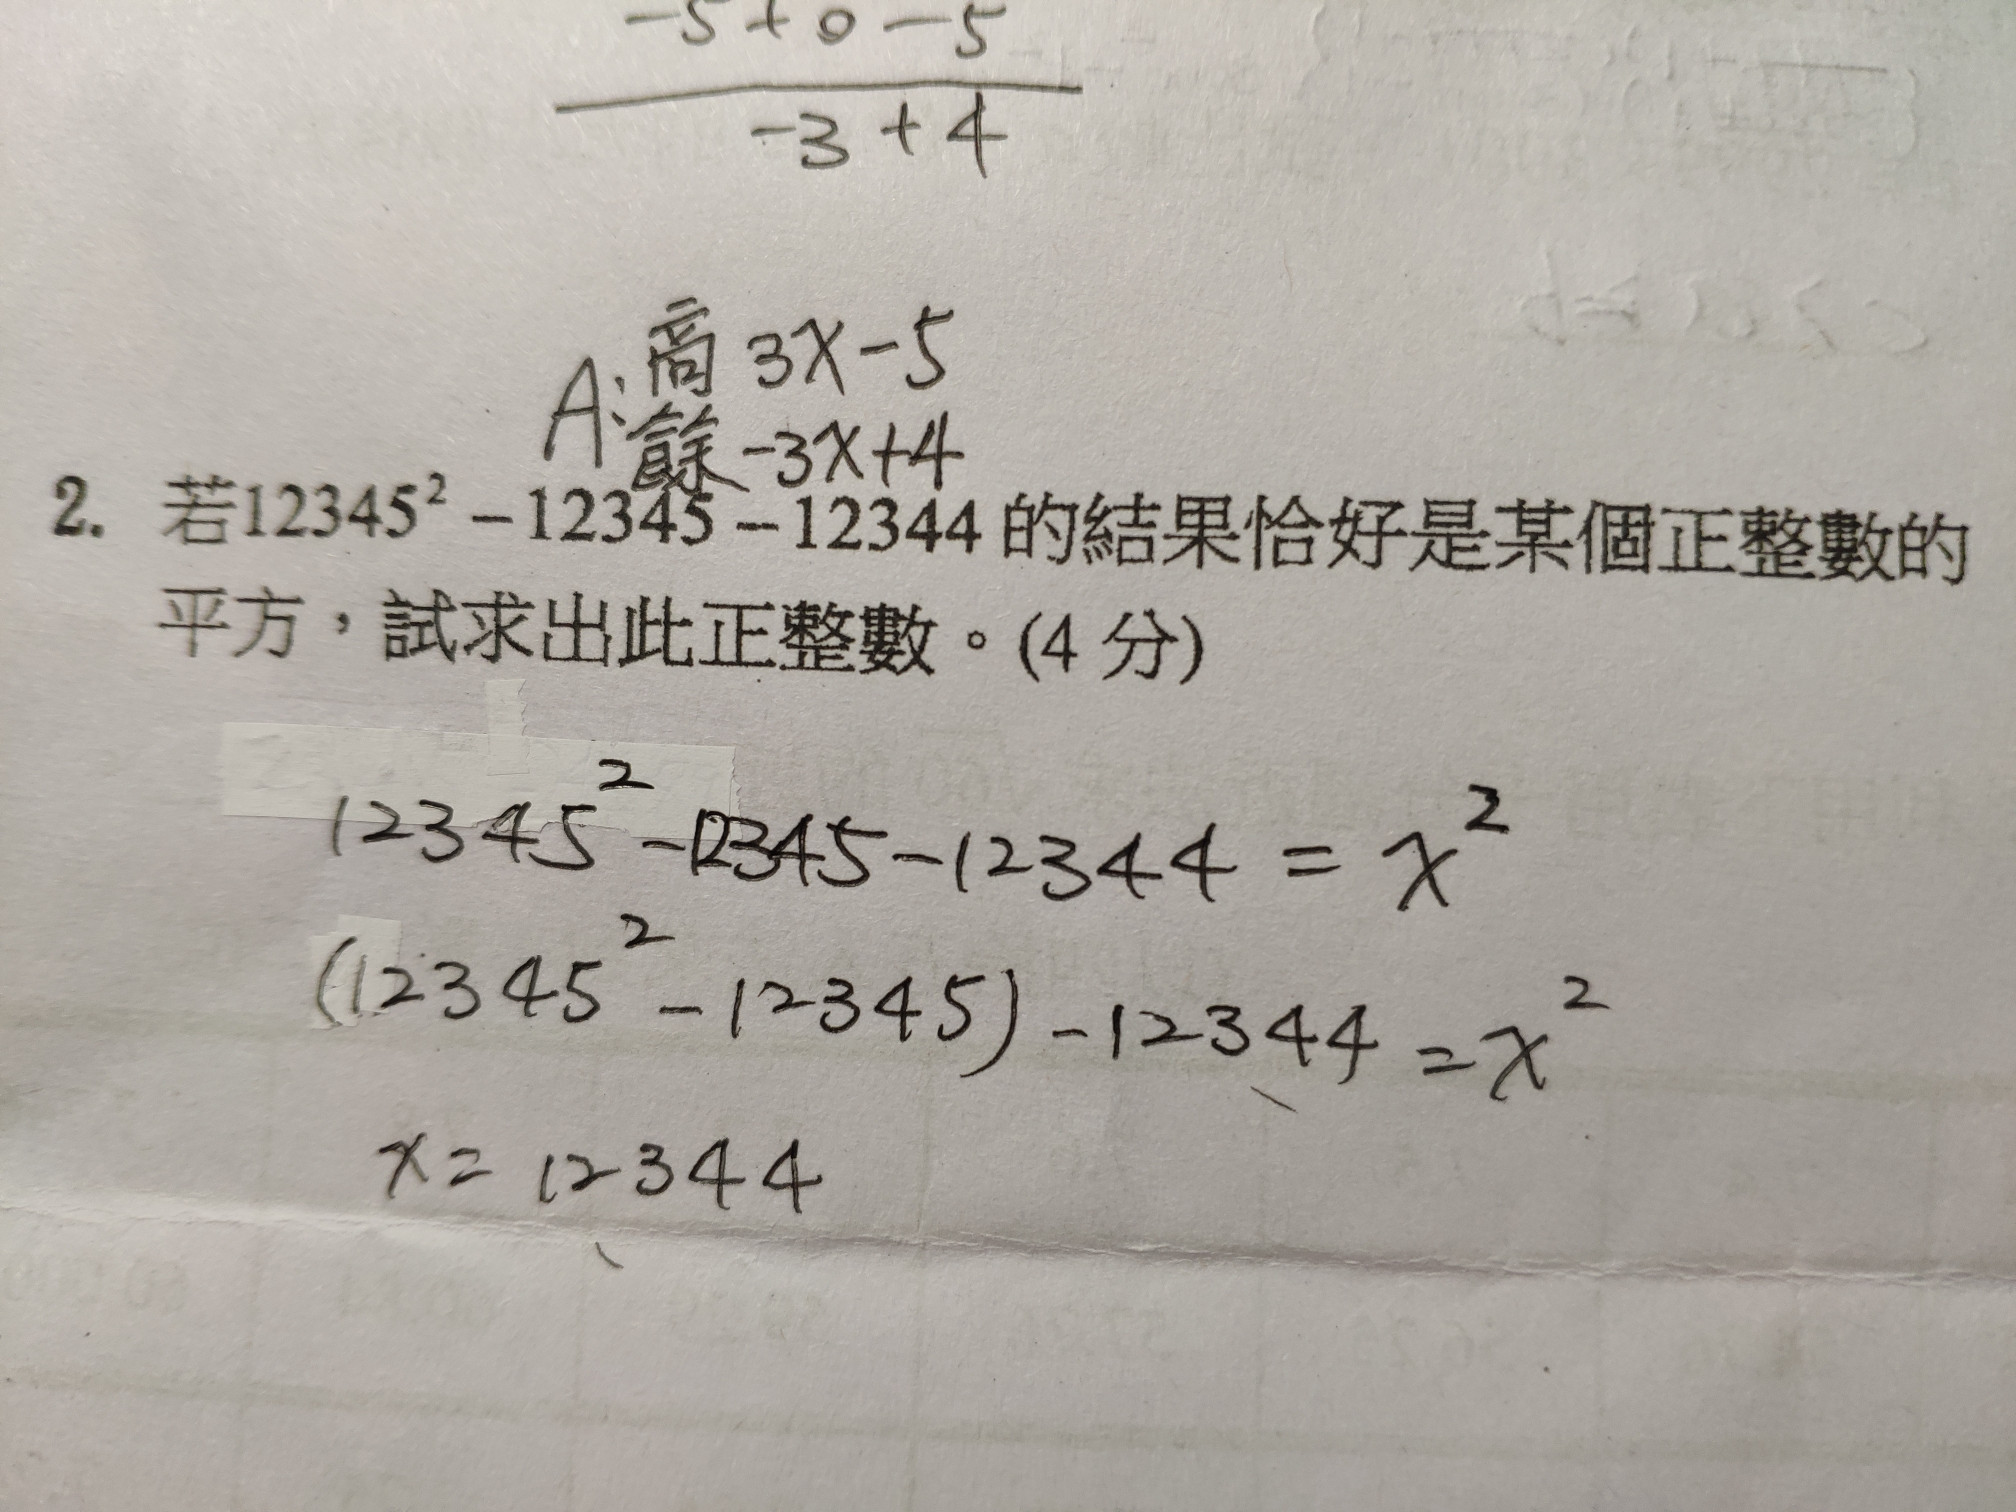 -5+0-5
-3+4
A:商 3x-5
餘 -3x+4
2. 若12345² -12345-12344 的結果恰好是某個正整數的
平方，試求出此正整數。(4 分)
12345²-12345-12344 = x²
(12345² -12345) -12344 = x²
x= 12344